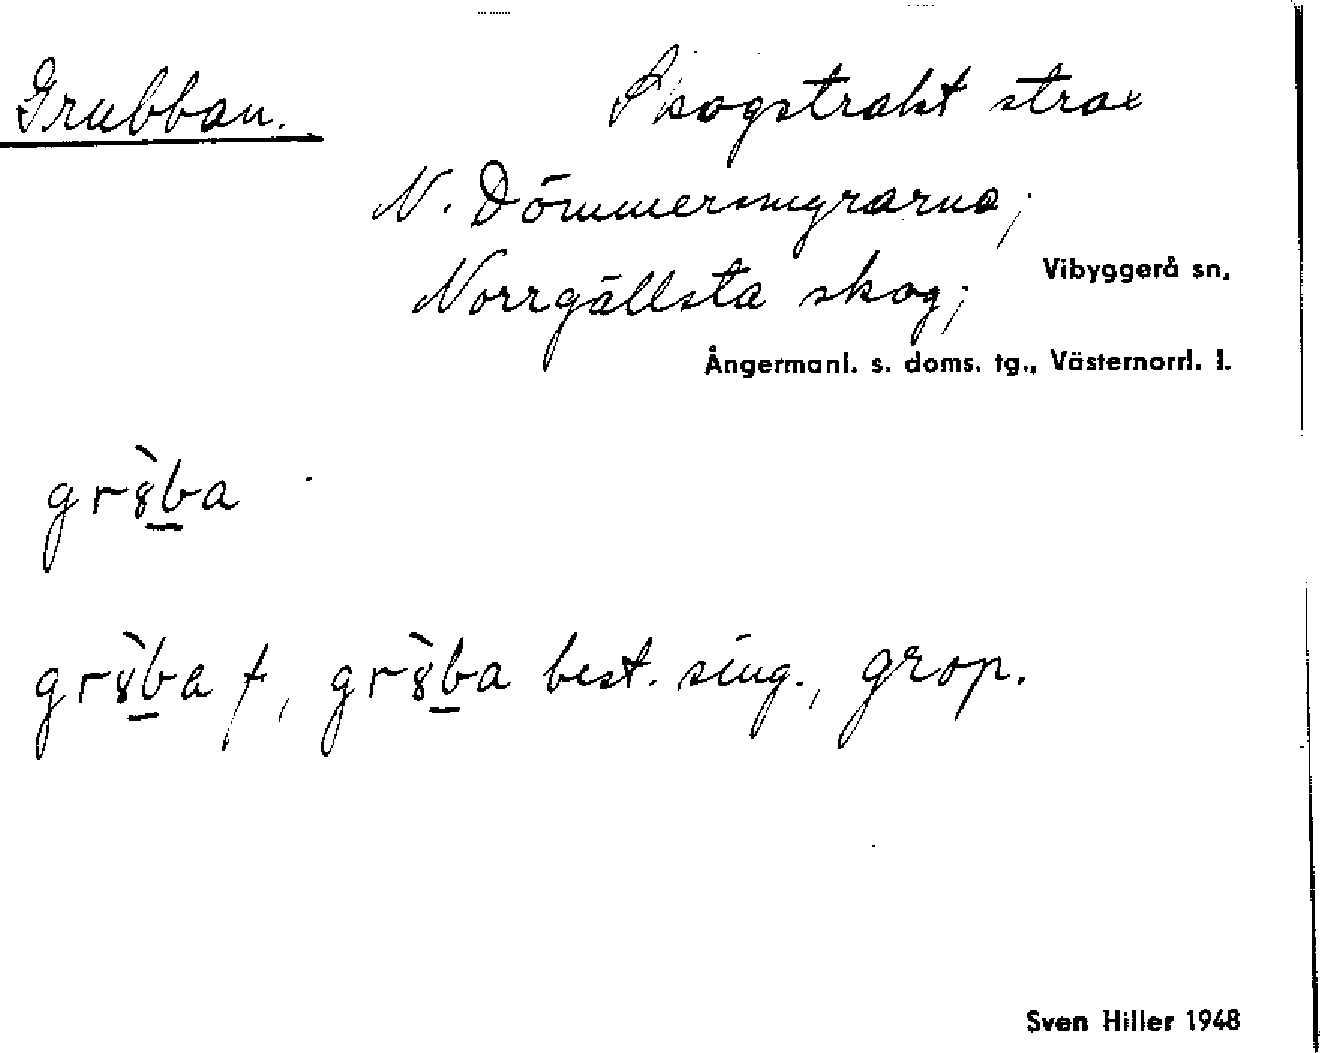 Grubban.
Skogstrakt strax
N. Dömmersmyrarna;
Norrgällsta skog;
Vibyggerå sn,
Ångermanl. s. doms. tg., Västernorrl. l.
gr8̀b̲a
gr8̀b̲a f, gr8̀b̲a best. sing., grop.
Sven Hiller 1948